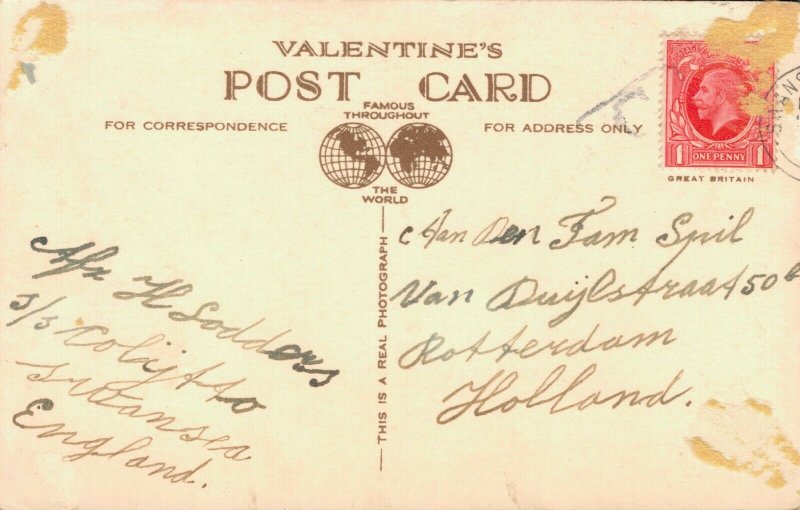 VALENTINE'S
POST CARD
FAMOUS
THROUGHOUT
THE
WORLD
FOR CORRESPONDENCE
FOR ADDRESS ONLY
1 ONE PENNY 1
GREAT BRITAIN
THIS IS A REAL PHOTOGRAPH
Afz H Sodders
S/S Colytto
Swansea
England.
Aan Den Fam Spil
Van Duijlstraat 50b
Rotterdam
Holland.